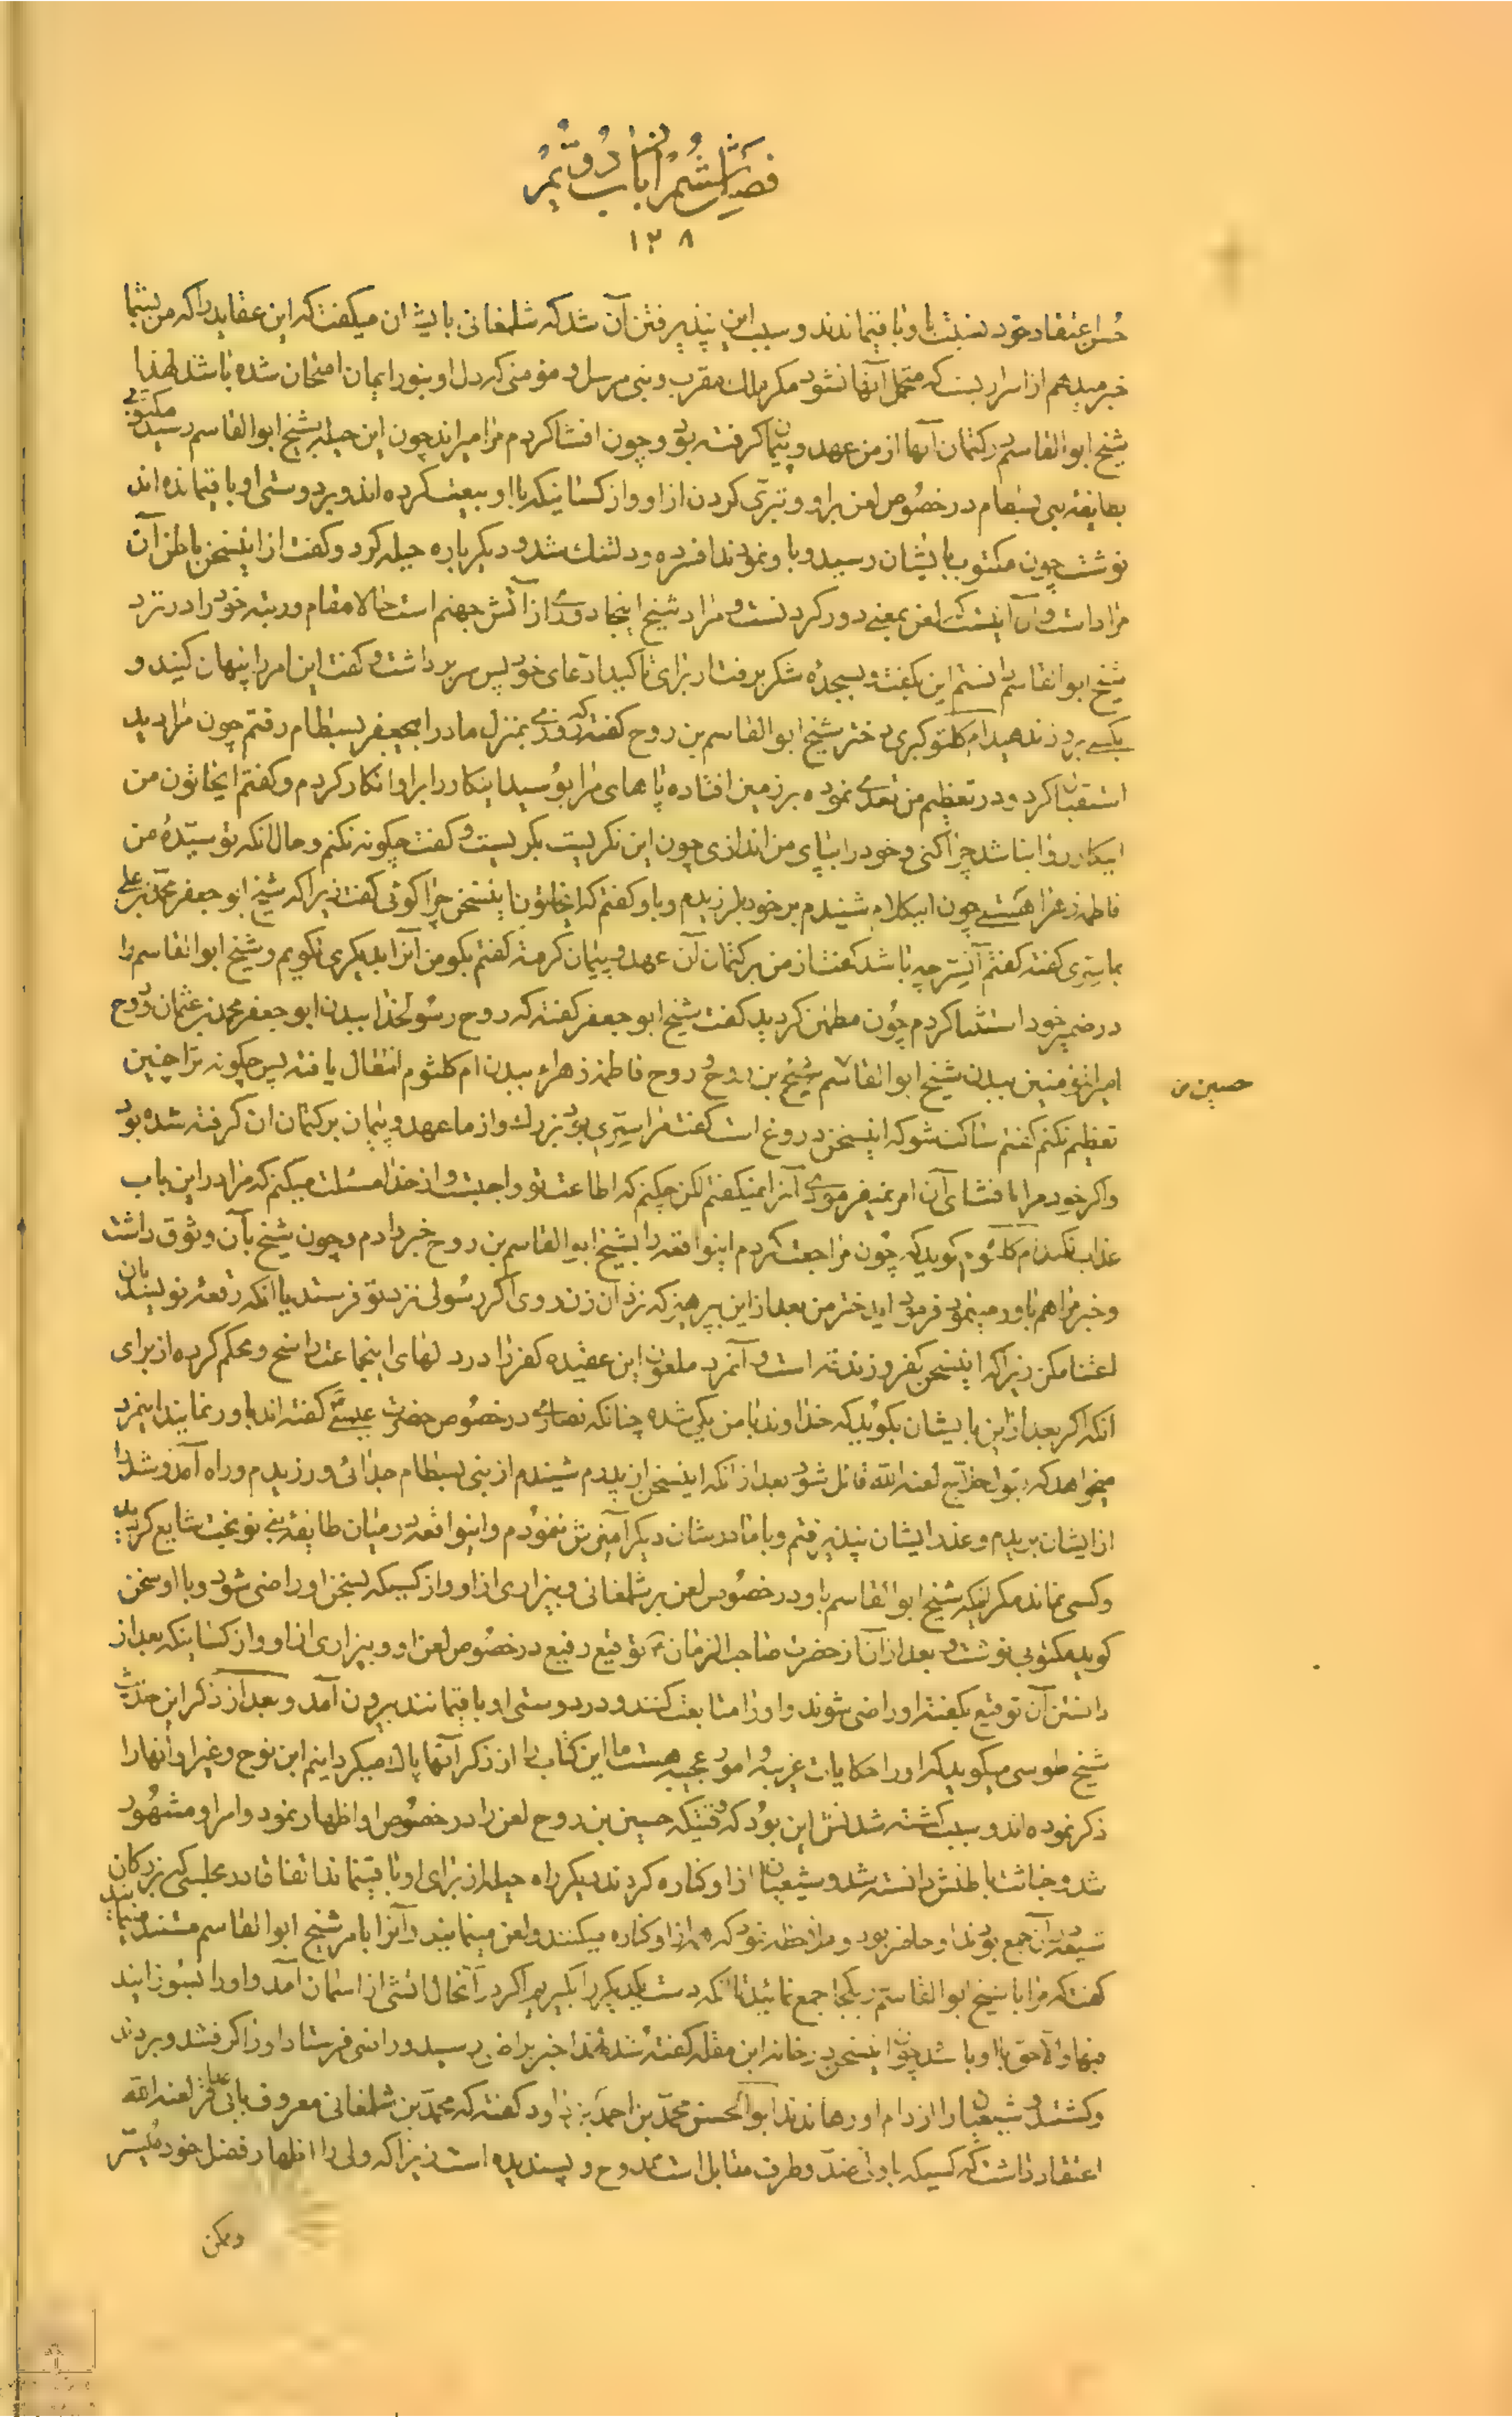 فصل ششم از باب دویم در
۱۲۸
حسن اعتقاد خود نسبت باو باقیماندند و سبب این پذیرفتن آن شد که شلمغانی بایشان میگفت که این عقاید را که من بشما
خبر میدهم از اسرار است که متحمل آنها نشود مکر ملك مقرب و نبی مرسل و مؤمنی که دل او بنور ایمان امتحان شده باشد لهذا
شیخ ابو القاسم در کتمان آنها از من عهد و پیمان کرفته بود و چون افشا کردم مرا میراند چون این حیله بشیخ ابو القاسم رسید مکتوبی
بطایفه بنی بسطام در خصوص لعن بر او و تبری کردن از او و از کسانیکه با او بیعت کرده اند و بر دوستی او باقیمانده اند
نوشت چون مکتوب بایشان رسید و باو نمودند افسرده و دلتنك شد و دیکر باره حیله کرد و کفت از اینسخن باطن آن
مراد است و آن اینست که لعن بمعنی دور کردنست و مراد شیخ اینجا دوری از آتش جهنم است حالا مقام و رتبه خود را در نزد
شیخ ابو القاسم دانستم این بگفت و بسجده شکر برفت از برای تاکید ادعای خود پس سر برداشت و کفت این امر را پنهان کنید و
بکسی بروز ندهید ام کلثوم کبری دختر شیخ ابو القاسم بن روح کفته که روزی بمنزل مادر ابیجعفر بسطام رفتم چون مرا دید
استقبال کرد و در تعظیم من تعدی نموده بر زمین افتاده پاهای مرا بوسید اینکار را بر او انکار کردم و کفتم ایخاتون من
اینکار روا نباشد چرا کنی و خود را بپای من اندازی چون این نکریست بکریست و کفت چکونه نکنم و حال انکه تو سیده من
فاطمه زهرا هستی چون اینکلام شنیدم بر خود بلرزیدم و باو کفتم که ایخاتون اینسخن چرا کوئی کفت زیرا که شیخ ابو جعفر محمد بن علی
بما سری کفته کفتم آنسر چه باشد کفت از من بر کتمان آن عهد و پیمان کرفته کفتم بکو من آنرا بدیکری نکویم و شیخ ابو القاسم را
در ضمیر خود استثنا کردم چون مطمئن کردید کفت شیخ ابو جعفر کفته که روح رسولخدا ببدن ابو جعفر محمد بن عثمان و روح
امیرالمؤمنین ببدن شیخ ابو القاسم شیخ بن روح و روح فاطمه زهراء ببدن ام کلثوم انتقال یافته پس چکونه ترا چنین
حسین من
تعظیم نکنم کفتم ساکت شو که اینسخن دروغ است کفت مرا سری بود بزرك و از ما عهد و پیمان بر کتمان ان کرفته شده بود
و اکر خود مرا بافشای آن امر نمیفرمودی آنرا نمیکفتم لکن چکنم که اطاعت تو واجبست و از خدا مسئلت میکنم که مرا در این باب
عذاب نکند ام کلثوم کوید که چون مراجعت کردم اینواقعه را بشیخ ابو القاسم بن روح خبر دادم و چون شیخ بآن وثوق داشت
و خبر مرا هم باور مینمود فرمود ایدختر من بعد از این بپرهیز که نزد آن زن روی اکر رسولی نزد تو فرستد یا انکه رقعه نویسد بآن
اعتنا مکن زیرا که اینسخن کفر و زندقه است و آنمرد ملعون این عقیده کفر را در دلهای اینجماعت راسخ و محکم کرده از برای
آنکه اکر بعد از این بایشان بکوید که خداوند با من یکی شده چنانکه نصاری در خصوص حضرت عیسی کفته اند باور نمایند اینمرد
میخواهد که بقول حلاج لعنه الله قائل شود بعد از انکه اینسخن از پدرم شنیدم از بنی بسطام جدائی ورزیدم و راه آمد و شد را
از ایشان بریدم و عذر ایشان نپذیرفتم و با مادرشان دیکر آمیزش ننمودم و اینواقعه در میان طایفه بنی نوبخت شایع کردید
و کسی نماند مکر اینکه شیخ ابو القاسم باو در خصوص لعن بر شلمغانی و بیزاری از او و از کسیکه بسخن او راضی شود و با او سخن
کوید مکتوبی نوشت و بعد از آن از حضرت صاحب الزمان توقیع رفیع در خصوص لعن او و بیزاری از او و از کسانیکه بعد از
دانستن آن توقیع بکفته او راضی شوند و او را متابعت کنند و در دوستی او باقیمانند بیرون آمد و بعد از ذکر این حدیث
شیخ طوسی میکوید که او را حکایات غریبه و امور عجیبه هست ما این کتاب را از ذکر آنها پاك میکردانیم ابن نوح و غیر او آنها را
ذکر نموده اند و سبب کشته شدنش این بود که وقتیکه حسین بن روح لعن را در خصوص او اظهار نمود و امر او مشهود
شد و خباثت باطنش دانسته شد و شیعیان از او کناره کردند دیکر راه حیله از برای او باقینماند اتفاقا در مجلسی که بزرکان
شیعه در آن جمع بودند او حاضر بود و ملاحظه نمود که همه از او کناره میکنند و لعن مینمایند و آنرا بامر شیخ ابو القاسم مستند مینمایند
کفت که مرا با شیخ ابو القاسم در یکجا جمع نمائید تا انکه دست یکدیکر را بکیریم اکر در آنحال اتشی از اسمان آمد و او را بسوزانید
فبها والا حق با او باشد چون اینسخن در خانه ابن مقله کفته شده بود لهذا خبر براضی رسید و راضی فرستاد او را کرفتند و بردند
و کشتند و شیعیان را از دام او رهاندند ابو الحسن محمد بن احمد بن داود کفته که محمد بن شلمغانی معروف بابن ابی عزاقر لعنه الله
اعتقاد داشت که کسیکه با ولی ضد و طرف مقابل است ممدوح و پسندیده است زیرا که ولی را اظهار فضل خود میسر
و ممکن